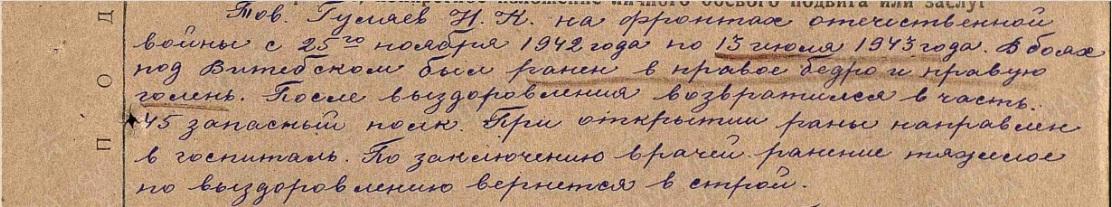 ложение личного боевого подвига или заслуг
Тов. Гуляев Н. К. на фронтах отечественной
войны с 25го ноября 1942 года по 13 июля 1943 года. В боях
под Витебском был ранен в правое бедро и правую
голень. После выздоровления возвратился в часть.
45 запасный полк. При открытии раны направлен
в госпиталь. По заключению врачей ранение тяжелое
по выздоровлению вернется в строй.
П О Д